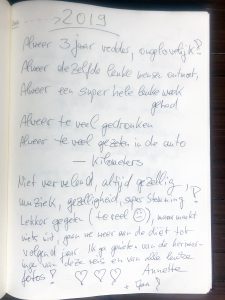 2019
Alweer 3 jaar verder, ongelooflijk!
Alweer dezelfde leuke mensen ontmoet,
Alweer een super hele leuke week
gehad
Alweer te veel gedronken
Alweer te veel gezeten in de auto
— Kilometers
Niet vervelend, altijd gezellig,
muziek, gezelligheid, super stemming!
Lekker gegeten (te veel ☺), maar maakt
niets uit, gaan we weer aan de dieet tot
volgend jaar. Ik ga genieten van de herinne-
ringe van deze reis en van alle leuke
foto's! ♡ ♡ ♡ Annette